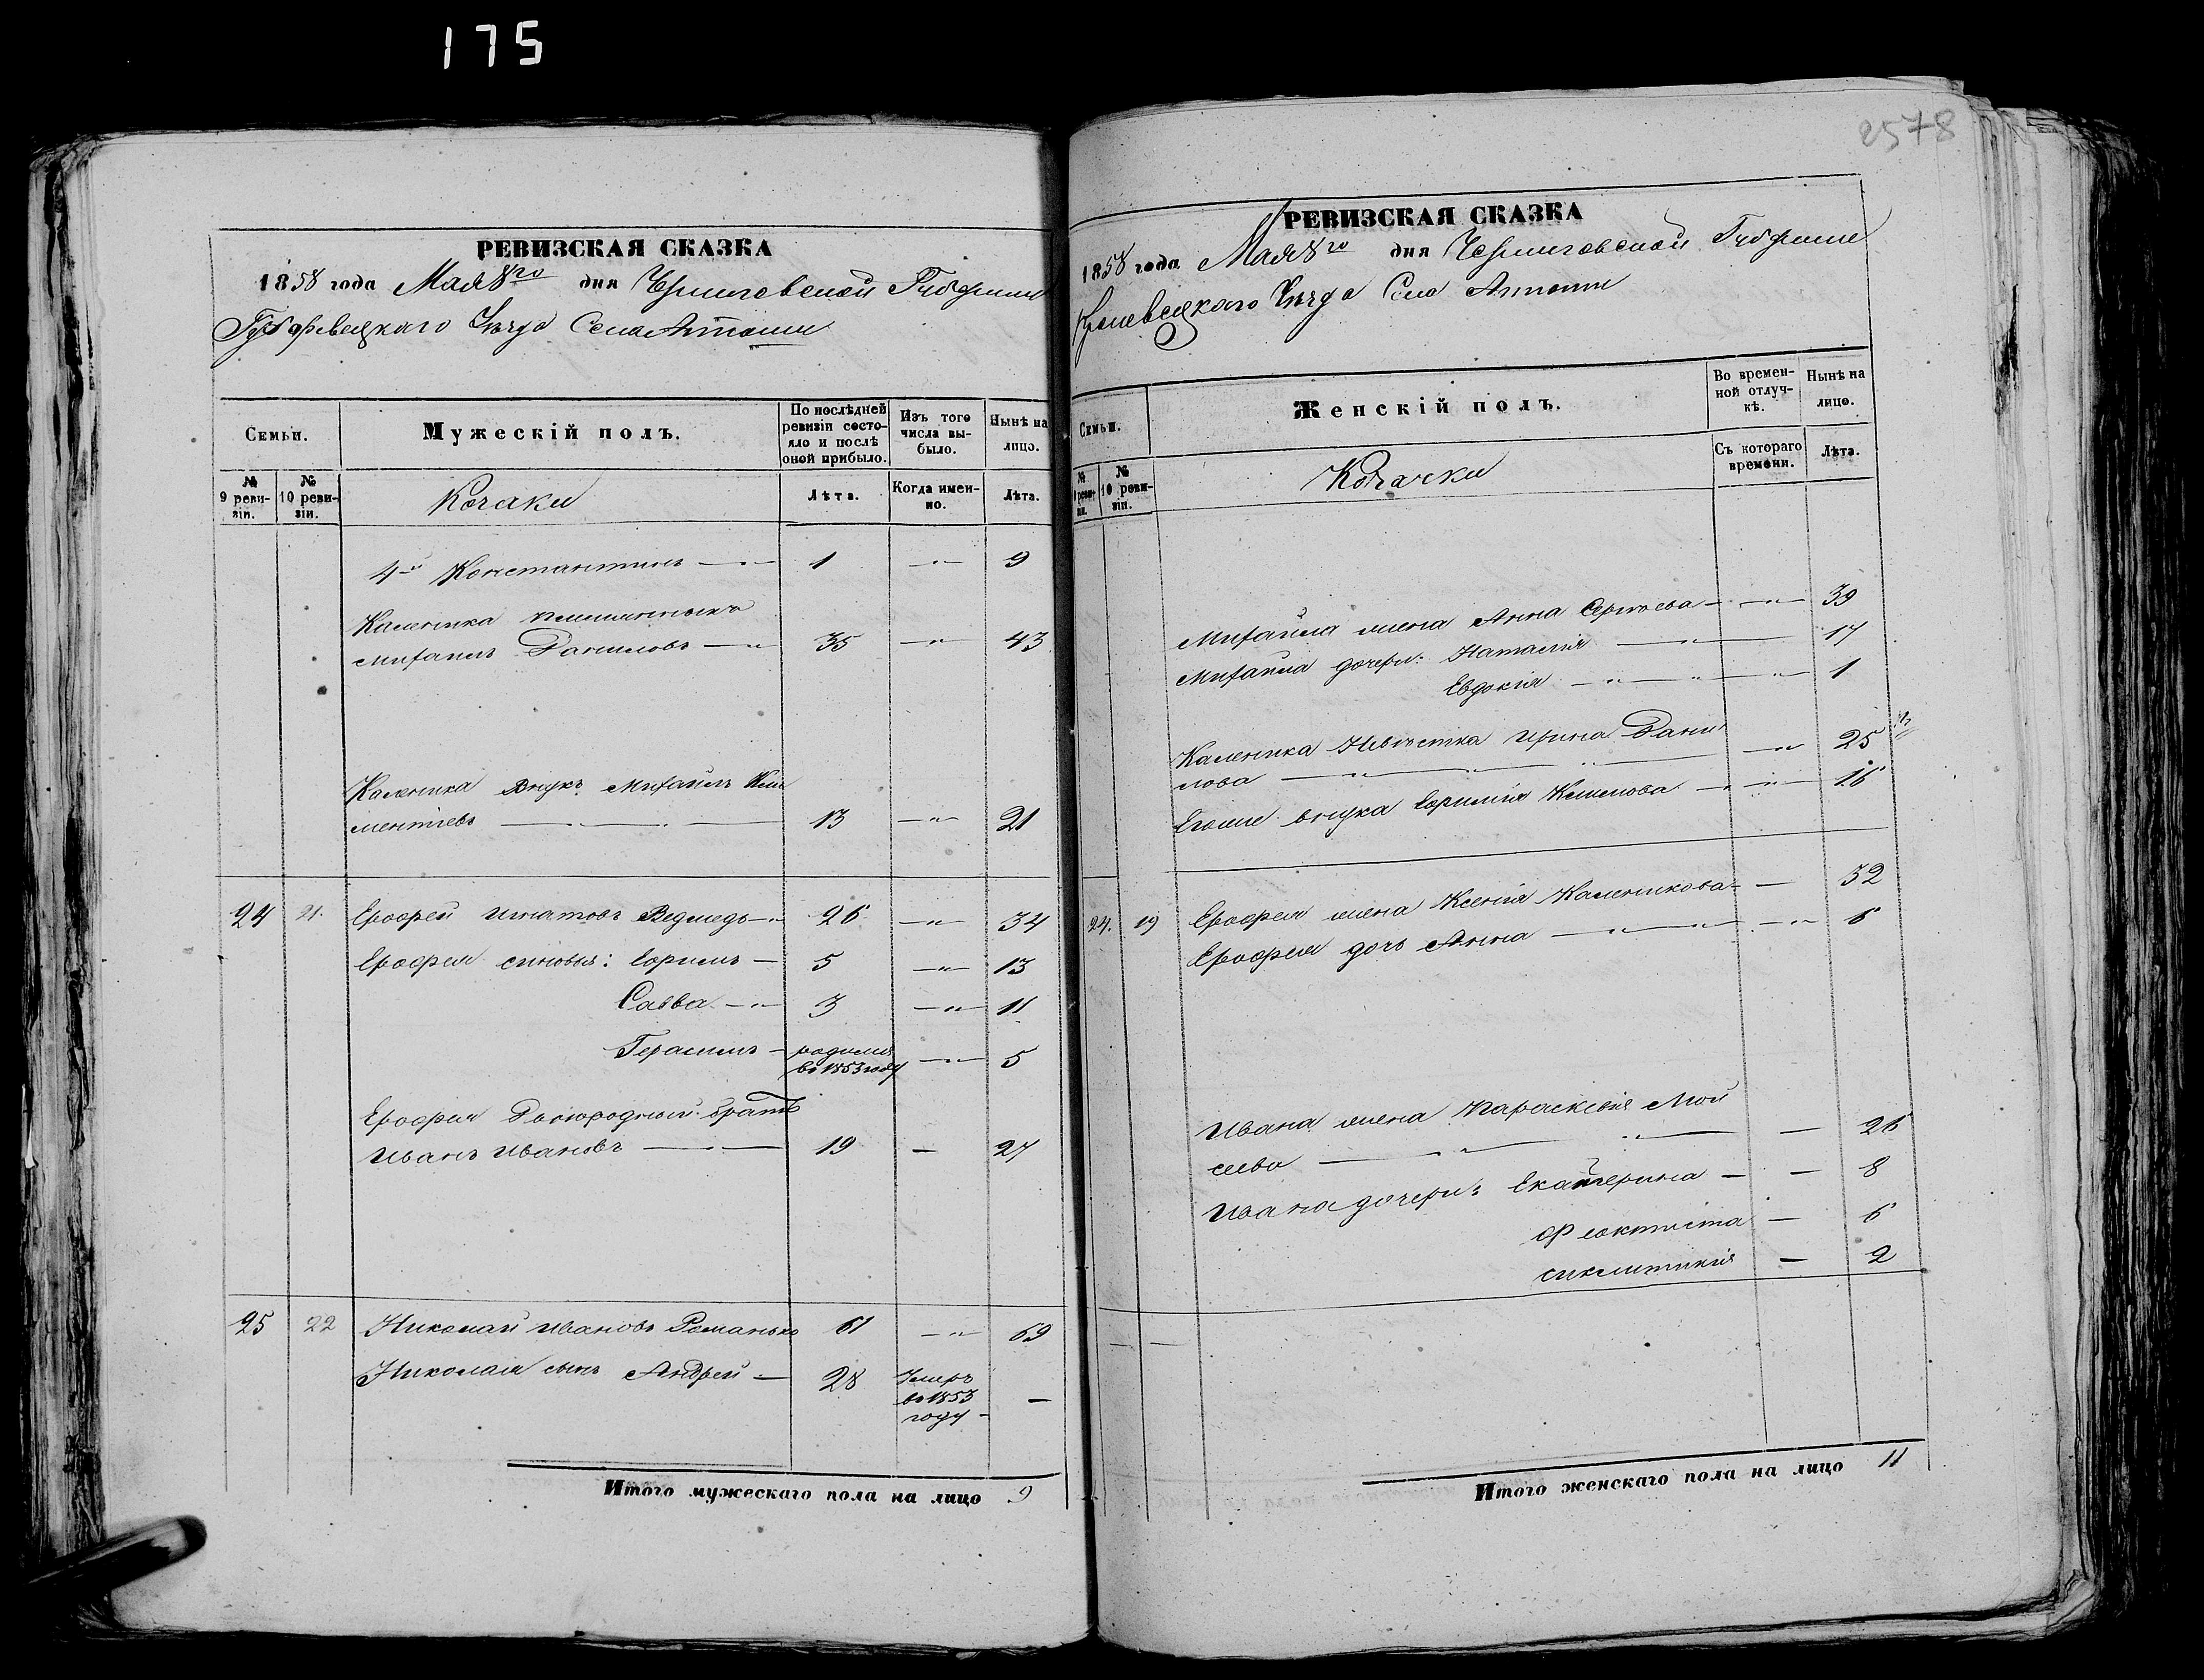 175
2578
РЕВИЗСКАЯ СКАЗКА
1858 года Мая 8го дня Черниговской Губернии
Уезда Села
Семьи.
Мужескій полъ.
По послѣдней ревизіи состояло и послѣ оной прибыло.
Изъ того числа выбыло.
Нынѣ на лицо.
№ 9 ревизіи.
№ 10 ревизіи.
Козаки
Лѣта.
Когда именно.
Лѣта.
4й Константинъ 1 9
Каленика племянникъ
Михаилъ Даниловъ 35 43
Каленика внукъ Михаилъ Кли
ментіевъ 13 21
24 21. Ерофей Игнатовъ Ведмедь 26 34
Ерофея сыновья: Ефимъ 5 13
Савва 3 11
Герасимъ родился во 1853 году 5
Ерофея Двоюродный братъ
Иванъ Ивановъ 19 27
25 22 Николай Ивановъ Романько 61 69
Николая сынъ Андрей 28 Умеръ во 1853 году
Итого мужескаго пола на лицо 9
РЕВИЗСКАЯ СКАЗКА
1858 года Мая 8го дня Черниговской Губернии
Кролевецкаго Уезда Село
Семьи.
Женскій полъ.
Во временной отлучкѣ.
Нынѣ на лицо.
№ ревизіи.
№ 10 ревизіи.
Козачки
Съ котораго времени.
Лѣта.
Михаила жена Анна Сергѣева 39
Михаила дочери: Наталия 17
Евдокія 1
Каленика Невѣстка Ирина Дани
лова 25
внучка Ефимія 16
24. 19 Ерофея жена Ксенія Каленикова 32
Ерофея дочь Анна 6
Ивана жена Параскевія Мой
сеева 26
Ивана дочери: Екатерина 8
Феоктиста 6
Сиклитикія 2
Итого женскаго пола на лицо 11